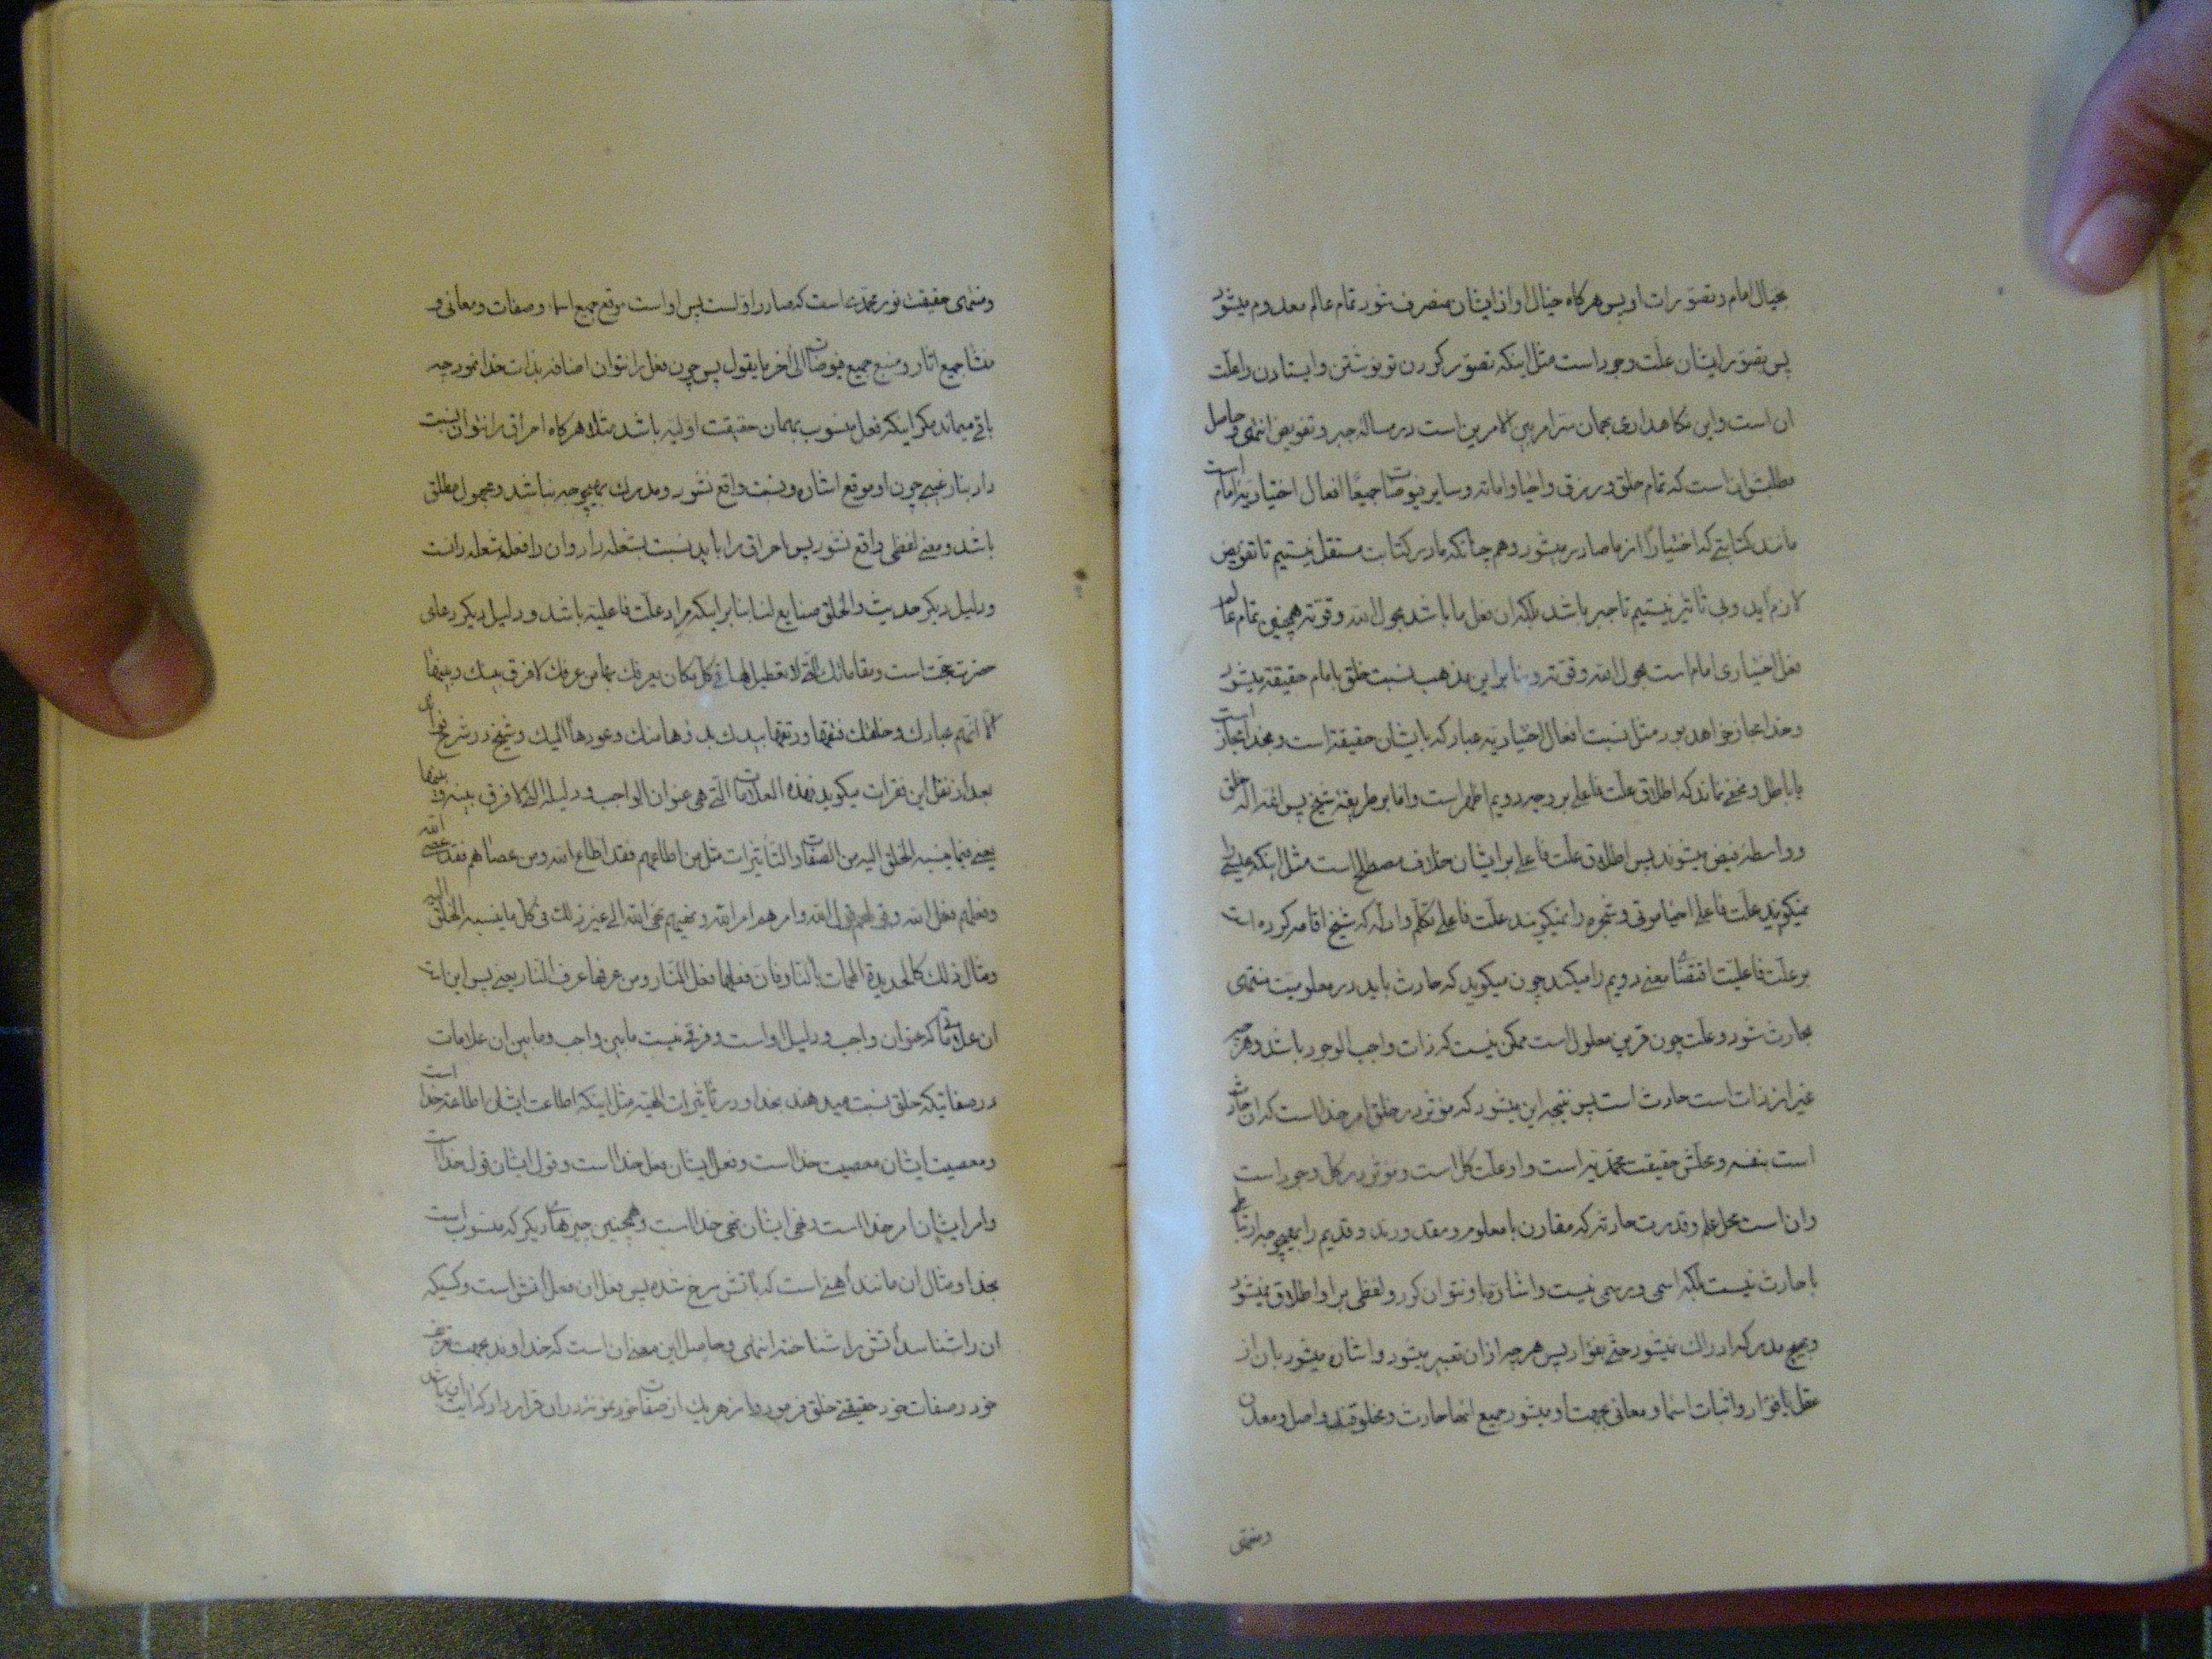 بخیال امام و تصورات او پس هرگاه خیال او از ایشان منصرف شود تمام عالم معدوم میشود
پس تصور ایشان علت وجود است مثل اینکه تصور کردن تو نوشتن و ایستادن را علت
ان است و این نگاهداری همان سر امر بین الامرین است در مسالهٔ جبر و تفویض انتهی و حاصل
مطلبش ان است که تمام خلق و رزق و احیا و اماته و سایر فیوضات جمیعًا افعال اختیاریه امام است
مانند کتابتی که اختیارًا از ما صادر میشود و هم چنانکه ما در کتابت مستقل نیستیم تا تفویض
لازم اید و بی تاثیر نیستیم تا جبر باشد بلکه ان فعل ما باشد بحول الله و قوته همچنین تمام عالم
فعل اختیاری امام است بحول الله و قوته و بنا بر این مذهب نسبت خلق بامام حقیقة میشود
و بخدا مجاز خواهد بود مثل نسبت افعال اختیاریه عباد که بایشان حقیقة است و بخدا مجاز است
یا باطل و مخفی نماند که اطلاق علت فاعلی بر وجه دویم اظهر است و اما بر طریقهٔ شیخ پس ائمه الهٔ خلق
و واسطهٔ فیض میشوند پس اطلاق علت فاعلی بر ایشان خلاف مصطلح است مثل اینکه عیسی را
نمیکویند علت فاعلی احیا موتی و شجره را نمیکویند علت فاعلی تکلم و ادله که شیخ اقامه کرده است
بر علت فاعلیت اقتضای معنی دویم را میکند چون میکوید که حادث باید در معلومیت منتهی
بحادث شود و علت چون قرین معلول است ممکن نیست که ذات واجب الوجود باشد و هر چیز
غیر از ذات است حادث است پس نتیجه این میشود که موثر در خلق امر خدا است که ان حادث
است بنفسه و محلش حقیقت محمدیه است و او علت کل است و موثر در کل وجود است
و ان است محل علم و قدرت حادثه که مقارن با معلوم و مقدورند و قدیم را بهیچوجه ارتباطی
با حادث نیست بلکه اسمی و رسمی نیست و اشاره باو نتوان کرد و لفظی بر او اطلاق نمیشود
و بهیچ مدرک ادراک نمیشود حتی بفؤاد پس هر چه از ان تعبیر میشود و اشاره میشود بان از
عقل یا فؤاد و اثبات اسما و معانی بجهت او میشود جمیع انها حادث و مخلوقند و اصل و معدن
و منتهی
و منتهای حقیقت نور محمدی است که صادر اولست پس او است موقع جمیع اسماء و صفات و معانی و
منشا جمیع اثار و منبع جمیع فیوضات الی اخر ما یقول پس چون فعل را نتوان اضافه بذات خدا نمود چه
باقی میماند مکر اینکه فعل منسوب بهمان حقیقت اولیه باشد مثلا هرکاه احراق را نتوان نسبت
داد بنار غیبی چون او موقع اشاره و نسبت واقع نشود و مدرک بهیچوجه نباشد و مجهول مطلق
باشد و معنی لفظی واقع نشود پس احراق را باید نسبت بشعله داد و ان را فعل شعله دانست
و دلیل دیکر حدیث و الخلق صنایع لنا بنا بر اینکه مراد علت فاعلیه باشد و دلیل دیکر دعای
حضرت حجت است و مقاماتک التی لا تعطیل لها فی کل مکان یعرفک بها من عرفک لا فرق بینک و بینها
الا انهم عبادک و خلقک فتقها و رتقها بیدک بدؤها منک و عودها الیک و شیخ در شرح
بعد از نقل این فقرات میکوید فهذه العلامات التی هی عنوان الواجب و دلیله التی لا فرق بینه و بینها
یعنی فیما ینسبه الخلق الیه من الصفات و التاثیرات مثل من اطاعهم فقد اطاع الله و من عصاهم فقد عصی الله
و فعلهم فعل الله و قولهم قول الله و امرهم امر الله و نهیهم نهی الله الی غیر ذلک فی کل ما ینسبه الخلق الیه
و مثال ذلک کالحدیدة المحمات بالنار فان فعلها فعل النار و من عرفها عرف النار یعنی پس این است
ان علاماتی که عنوان واجب و دلیل او است و فرقی نیست مابین واجب و مابین ان علامات
در صفاتیکه خلق نسبت میدهند بخدا و در تاثیرات الهیه مثل اینکه اطاعت ایشان اطاعة خدا است
و معصیت ایشان معصیت خدا است و فعل ایشان فعل خدا است و قول ایشان قول خدا است
و امر ایشان امر خدا است و نهی ایشان نهی خدا است و همچنین چیزهای دیکر که منسوب است
بخدا و مثال ان مانند اهنی است که باتش سرخ شده پس فعل ان فعل اتش است و کسیکه
ان را شناسد اتش را شناخته انتهی و حاصل این معنی ان است که خداوند بجهت تعریف
خود و صفات خود حقیقتی خلق فرمود و از هر یک از صفات خود نمونهٔ در ان قرار داد که